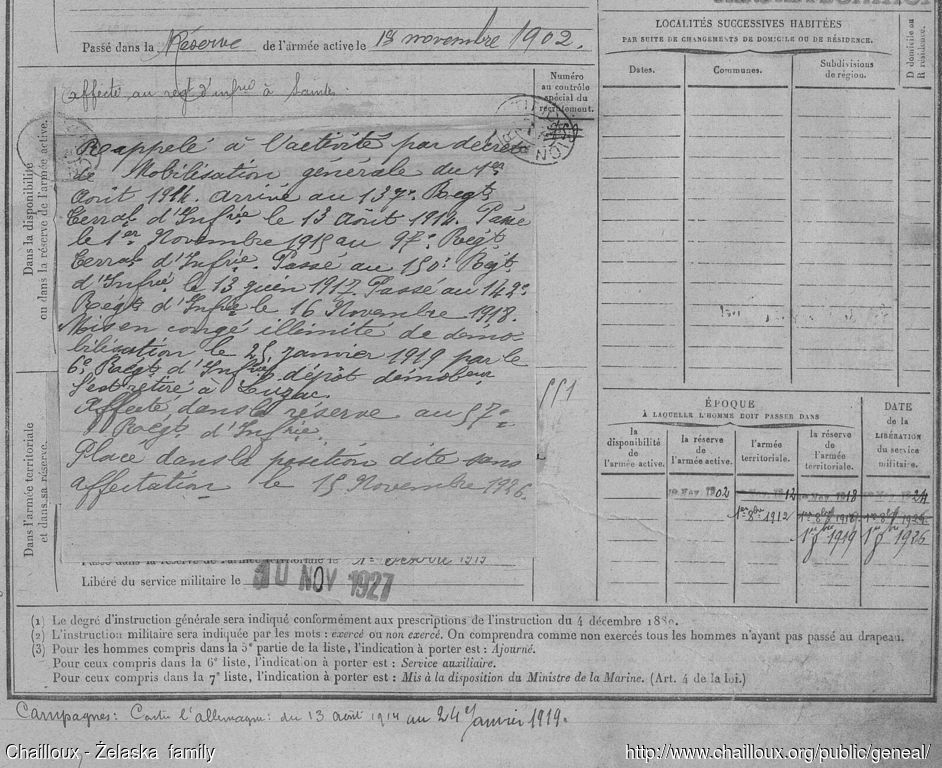 Passé dans la Réserve de l'armée active le 1er novembre 1902.
affecté au regt d'infrie à Saintes.
Numéro
au contrôle
spécial du
recrutement.
Dans la disponibilité
ou dans la réserve de l'armée active.
Rappelé à l'activité par décret
de Mobilisation générale du 1er
Août 1914. arrivé au 137e Regt
Terral d'Infrie le 13 Août 1914. Passé
le 1er Novembre 1915 au 97e Régt
Terral d'Infrie. Passé au 150e Régt
d'Infrie le 13 juin 1917 Passé au 142e
Régt d'Infrie le 16 Novembre 1918.
Mis en congé illimité de démo-
bilisation le 25 janvier 1919 par le
6e Régt d'Infrie dépôt démobeur
S'est retiré à Luzac.
Affecté dans la réserve au 57e
Régt d'Infrie.
Placé dans la position dite sans
affectation le 15 Novembre 1926.
Dans l'armée territoriale
et dans sa réserve.
551
Passé dans la réserve de l'armée territoriale le 1er Octobre 1919
Libéré du service militaire le 10 NOV 1927
LOCALITÉS SUCCESSIVES HABITÉES
PAR SUITE DE CHANGEMENTS DE DOMICILE OU DE RÉSIDENCE.
Dates.
Communes.
Subdivisions
de région.
D domicile ou
R résidence.
ÉPOQUE
À LAQUELLE L'HOMME DOIT PASSER DANS
DATE
de la
LIBÉRATION
du service
militaire.
la
disponibilité
de l'armée active.
la réserve
de l'armée active.
l'armée
territoriale.
la réserve
de l'armée
territoriale.
1er Nov 1902
Nov 1912
Nov 1918
1924
1er 8bre 1912
1er 8bre 1918
1er 8bre 1925
1er 8bre 1919
1er 8bre 1926
(1) Le degré d'instruction générale sera indiqué conformément aux prescriptions de l'instruction du 4 décembre 1889.
(2) L'instruction militaire sera indiquée par les mots : exercé ou non exercé. On comprendra comme non exercés tous les hommes n'ayant pas passé au drapeau.
(3) Pour les hommes compris dans la 5e partie de la liste, l'indication à porter est : Ajourné.
Pour ceux compris dans la 6e liste, l'indication à porter est : Service auxiliaire.
Pour ceux compris dans la 7e liste, l'indication à porter est : Mis à la disposition du Ministre de la Marine. (Art. 4 de la loi.)
Campagnes : Contre l'allemagne : du 13 août 1914 au 24 Janvier 1919.
Chailloux - Żelaska family
http://www.chailloux.org/public/geneal/